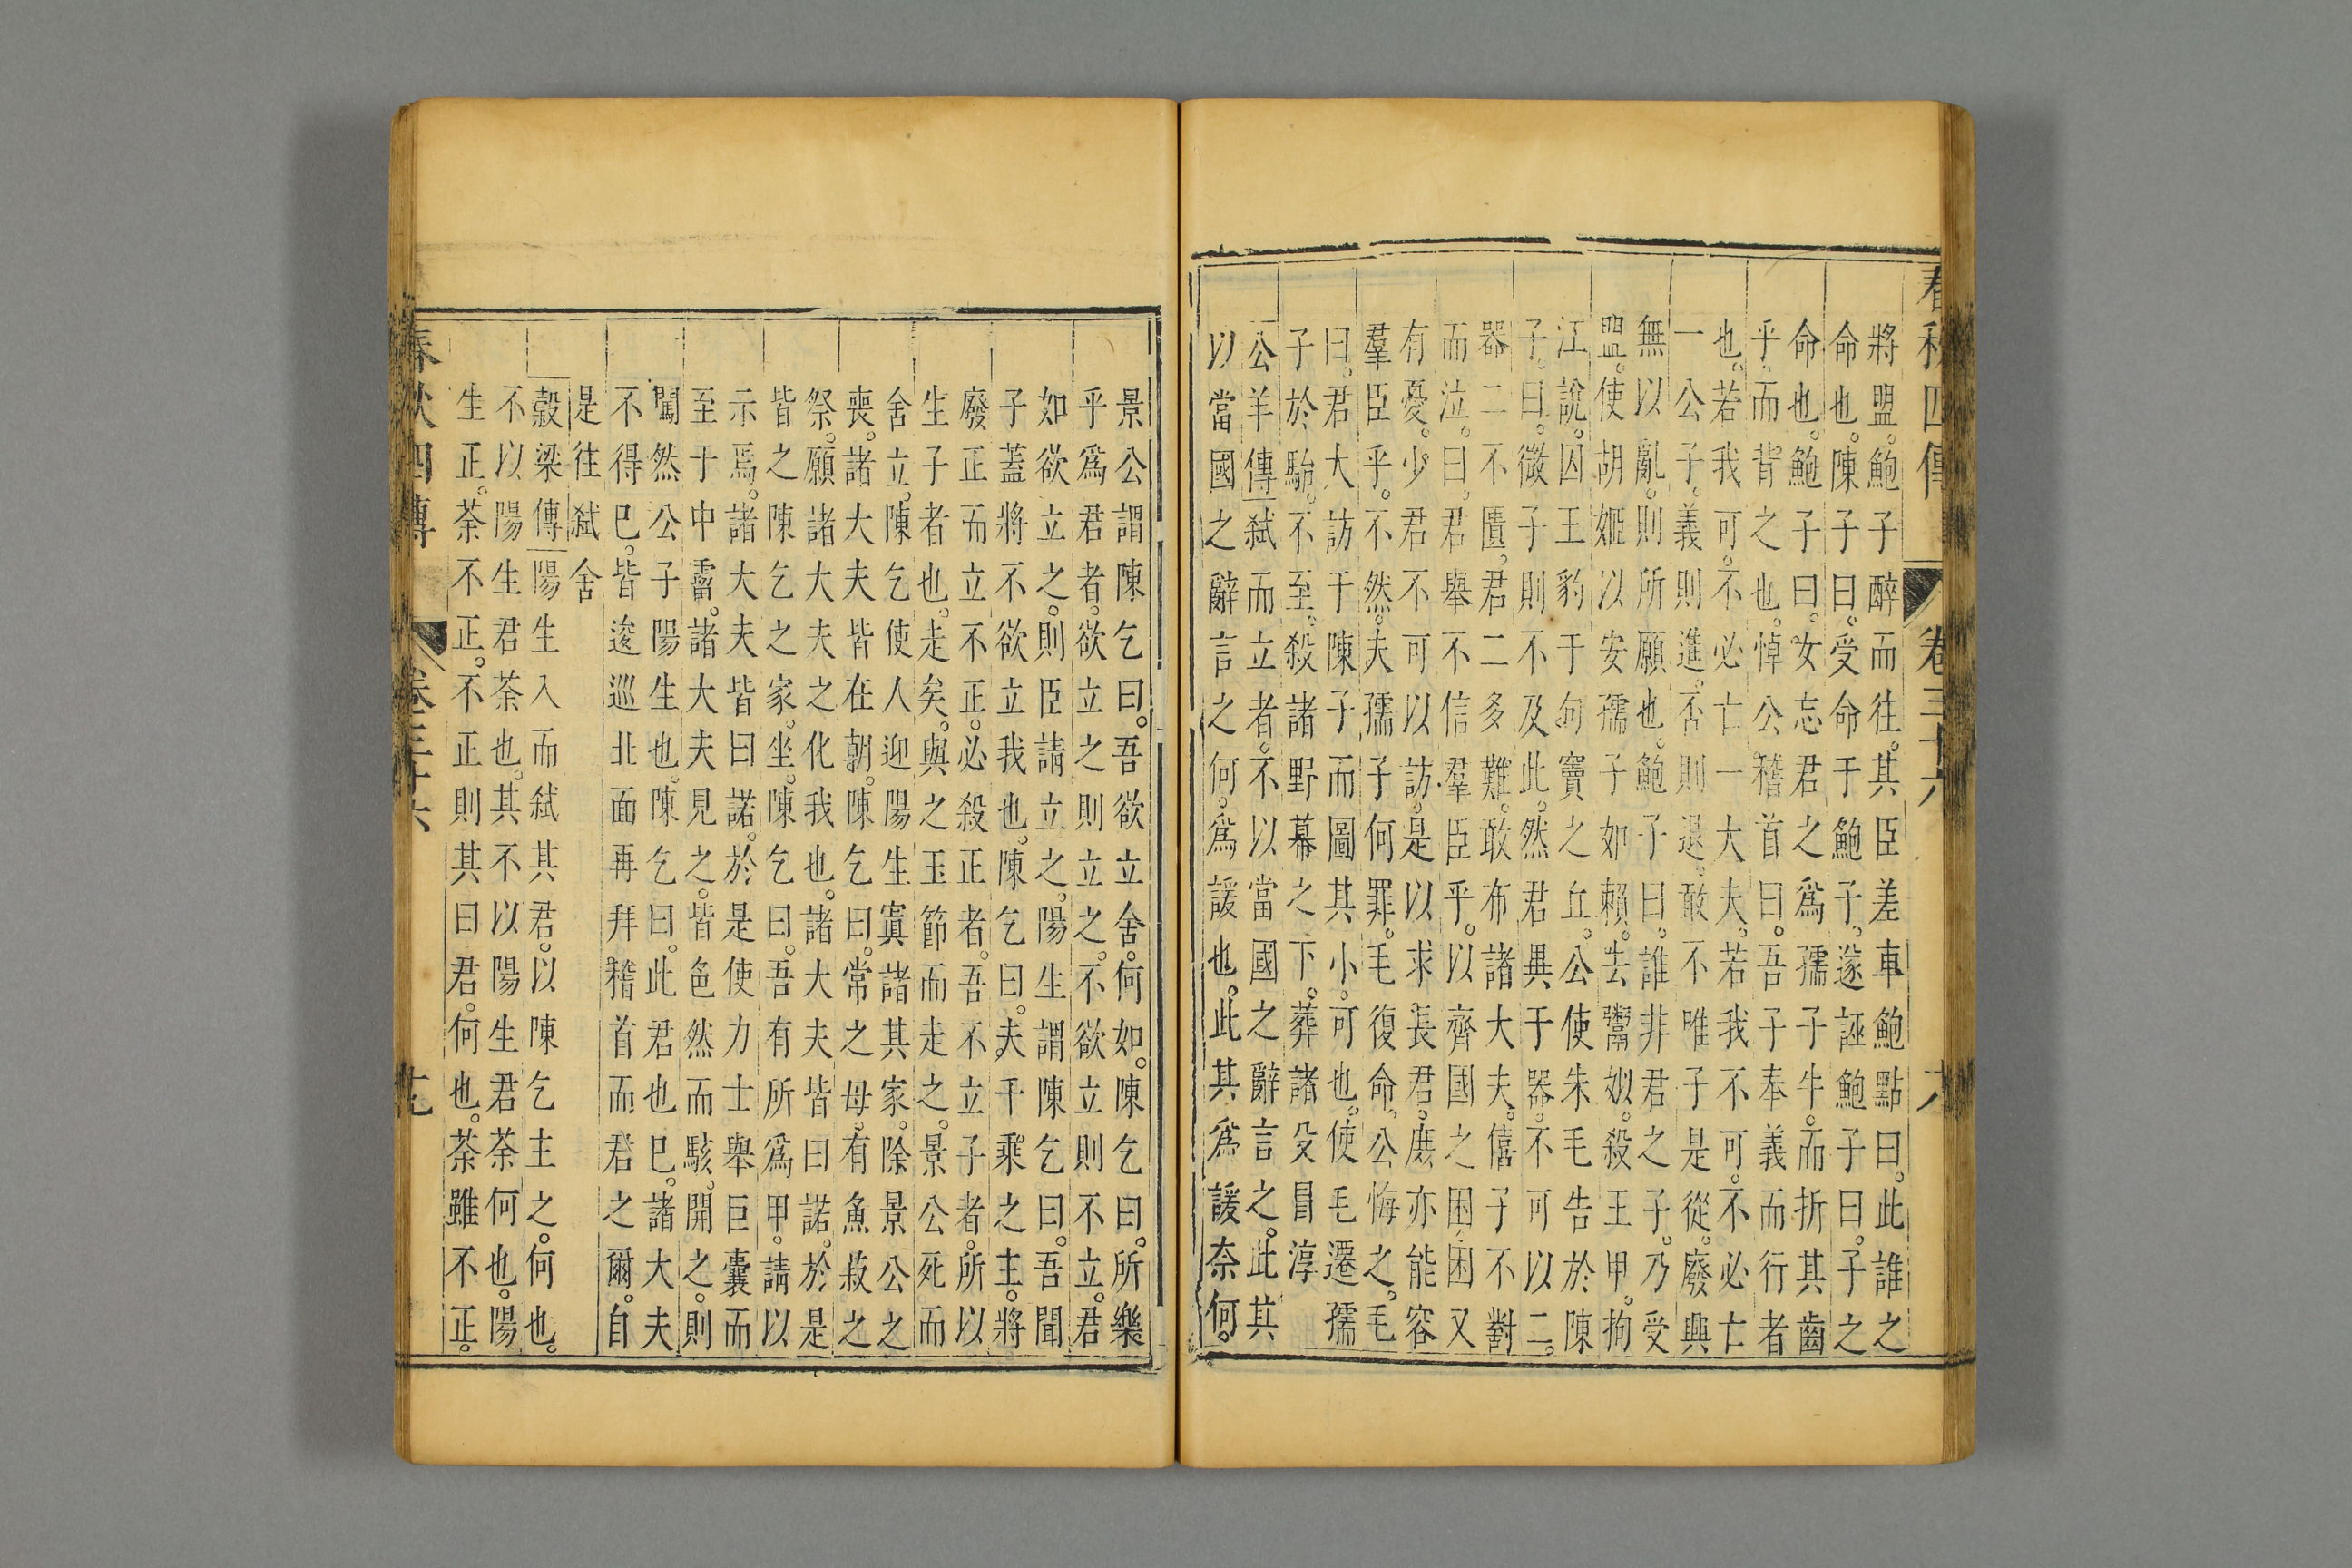 春秋四傳 卷三十六
將盟。鮑子醉而往。其臣差車鮑點曰。此誰之
命也。陳子曰。受命于鮑子。遂誣鮑子曰。子之
命也。鮑子曰。女忘君之爲孺子牛。而折其齒
乎。而背之也。悼公稽首曰。吾子奉義而行者
也。若我可。不必亡一大夫。若我不可。不必亡
一公子。義則進。否則退。敢不唯子是從。廢興
無以亂。則所願也。鮑子曰。誰非君之子。乃受
盟。使胡姬以安孺子如賴。去鬻姒。殺王甲。拘
江說。囚王豹于句竇之丘。公使朱毛告於陳
子。曰。微子則不及此。然君異于器。不可以二。
器二不匱。君二多難。敢布諸大夫。僖子不對
而泣。曰。君舉不信羣臣乎。以齊國之困。困又
有憂。少君不可以訪。是以求長君。庶亦能容
羣臣乎。不然。夫孺子何罪。毛復命。公悔之。毛
曰。君大訪于陳子而圖其小。可也。使毛遷孺
子於駘。不至。殺諸野幕之下。葬諸殳冒淳
公羊傳弑而立者。不以當國之辭言之。此其
以當國之辭言之何。爲諼也。此其爲諼奈何。
景公謂陳乞曰。吾欲立舍。何如。陳乞曰。所樂
乎爲君者。欲立之則立之。不欲立則不立。君
如欲立之。則臣請立之。陽生謂陳乞曰。吾聞
子蓋將不欲立我也。陳乞曰。夫千乘之主。將
廢正而立不正。必殺正者。吾不立子者。所以
生子者也。走矣。與之玉節而走之。景公死而
舍立。陳乞使人迎陽生寘諸其家。除景公之
喪。諸大夫皆在朝。陳乞曰。常之母。有魚菽之
祭。願諸大夫之化我也。諸大夫皆曰諾。於是
皆之陳乞之家。坐。陳乞曰。吾有所爲甲。請以
示焉。諸大夫皆曰諾。於是使力士舉巨囊而
至于中霤。諸大夫見之。皆色然而駭。開之。則
闖然公子陽生也。陳乞曰。此君也已。諸大夫
不得已。皆逡巡北面再拜稽首而君之爾。自
是往弑舍
穀梁傳陽生入而弑其君。以陳乞主之。何也。
不以陽生君荼也。其不以陽生君荼何也。陽
生正。荼不正。不正則其曰君。何也。荼雖不正。
春秋四傳 卷三十六